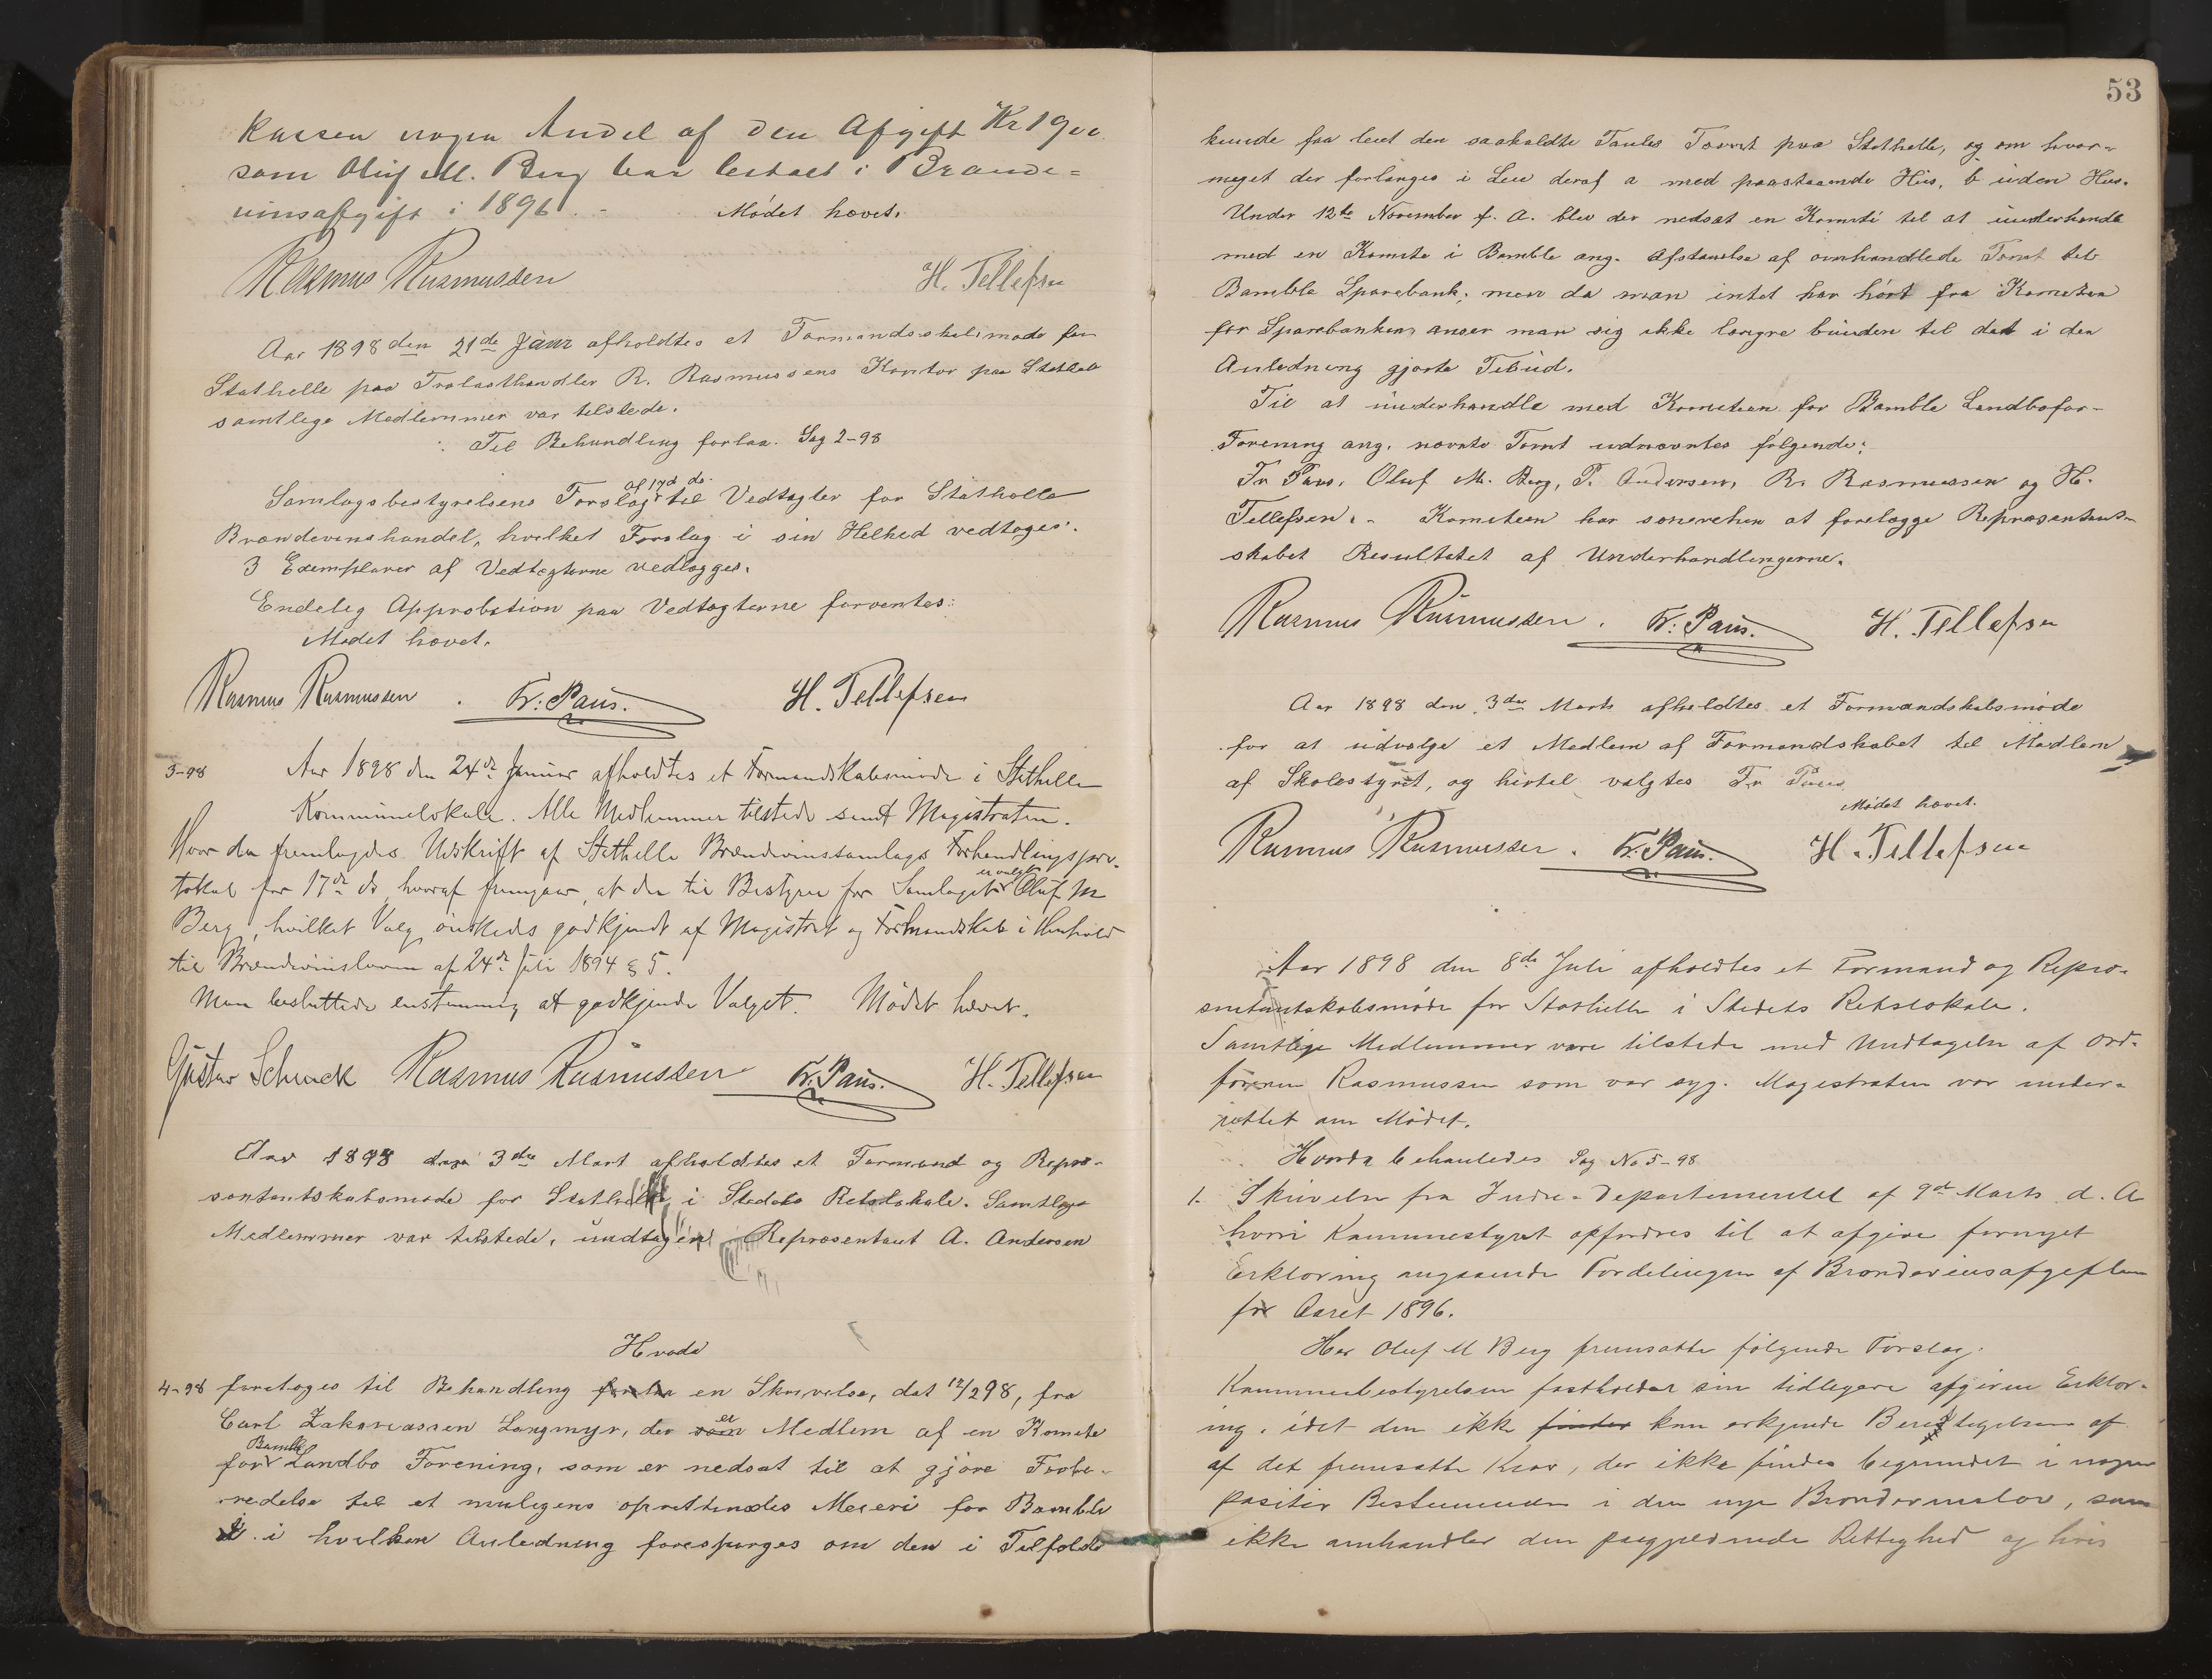 Kassen nogen Andel af den Afgift Kr 1900
som Oluf M. Berg har betalt i Brænde=
vinsafgift i 1896. - Mødet hævet.
Rasmus Rasmussen H. Tellefsen
Aar 1898 den 21de Janr afholdtes et Formandsskabsmøde for
Stathelle paa Trælasthandler R. Rasmussens Kontor paa Stathelle
samtlige Medlemmer var tilstede.
Til Behandling forlaa. Sag 2-98
af 17d ds.
Samlagsbestyrelsens Forslag til Vedtægter for Stathelle
Brændevinshandel, hvilket Forslag i sin Helhed vedtoges.
3 Exemplarer af Vedtægterne vedlægges.
Endelig Approbation paa Vedtægterne forventes.
Mødet hævet.
Rasmus Rasmussen. Fr. Paus. H. Tellefsen
3-98 Aar 1898 den 24de Januar afholdtes et Formandskabsmøde i Stathelle
Kommunelokale. Alle Medlemmer tilstede samt Magistraten.
Hvor da fremlagdes Udskrift af Stathelle Brændevinsamlags Forhandlingspro-
tokol for 17de ds, hvoraf fremgaar, at der til Bestyrer for Samlaget er valgt Oluf M
Berg, hvilket Valg ønskedes godkjendt af Magistrat og Formandskab i Henhold
til Brændevinsloven af 24de Juli 1894 § 5.
Man besluttede enstemmig at godkjende Valget. Mødet hævet.
Gustav Schack Rasmus Rasmussen Fr. Paus. H. Tellefsen
Aar 1898 den 3die Mart afholdtes et Formand og Repræ-
sentantskabsmøde for Stathelle i Stedets Retslokale. Samtlige
Medlemmer var tilstede, undtagen Repræsentant A. Andersen
Hvoda
4-98 foretoges til Behandling en Skrivelse, dat 12/2 98, fra
Carl Zakariassen Langmyr, der er Medlem af en Komite
for Bamble Landbo Forening, som er nedsat til at gjøre Forbe-
redelse til et muligens oprettendes Meieri for Bamble
i hvilken Anledning forespørges om den i Tilfælde
53
kunde faa leiet den saakaldte Taules Tomt paa Stathelle, og om hvor-
meget der forlanges i Leie deraf a med paastaaende Hus, b uden Hus.
Under 12te November f. A. blev der nedsat en Komité til at underhandle
med en Komite i Bamble ang. Afstaaelse af omhandlede Tomt til
Bamble Sparebank; men da man intet har hørt fra Komiteen
for Sparebanken anser man sig ikke længre bunden til det i den
Anledning gjorte Tilbud.
Til at underhandle med Komiteen for Bamble Landbofor-
Forening ang. nævnte Tomt udnævntes følgende:
Fr Paus, Oluf M. Berg, P. Andersen, R. Rasmussen og H.
Tellefsen. - Komiteen har senerehen at forelægge Repræsentant-
skabet Resultatet af Underhandlingerne.
Rasmus Rasmussen. Fr. Paus. H. Tellefsen
Aar 1898 den 3die Marts afholdtes et Formandskabsmøde
for at udvælge et Medlem af Formandskabet til Medlem
af Skolestyret, og hertil valgtes Fr Paus
Mødet hævet.
Rasmus Rasmussen. Fr. Paus. H. Tellefsen
Aar 1898 den 8de Juli afholdtes et Formand og Repræ-
sentantskabsmøde for Stathelle i Stedets Retslokale.
Samtlige Medlemmer vare tilstede med Undtagelse af Ord-
føreren Rasmussen som var syg. Magistraten var under-
rettet om Mødet.
Hvorda behandledes Sag No 5-98
1. Skrivelse fra Indre-Departementet af 9de Marts d. A
hvori Kommunestyret opfordres til at afgive fornyet
Erklæring angaaende Fordelingen af Brændevinsafgiften
for Aaret 1896.
Her Oluf M Berg fremsatte følgende Forslag:
Kommunebestyrelsen fastholder sin tidligere afgivne Erklær-
ing, idet den ikke finder kan erkjende Berettigelsen af
af det fremsatte Krav, der ikke findes begrundet i nogen
positiv Bestemmelse i den nye Brændevinslov, som
ikke omhandler den paagjældende Rettighed og hvis